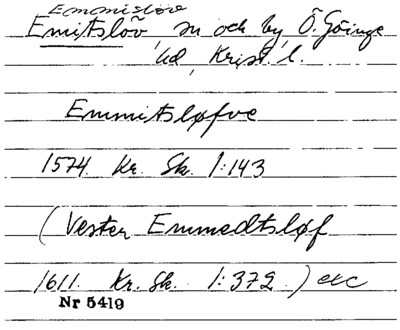 Emmislöv
Emitslöv, sn och by, Ö. Göinge
hd, Krist. l.
Emmitsløfve
1574. Kr. Sk. 1:143
(Vester Emmedtsløf
1611. Kr. Sk. 1:372.) etc
Nr 5419